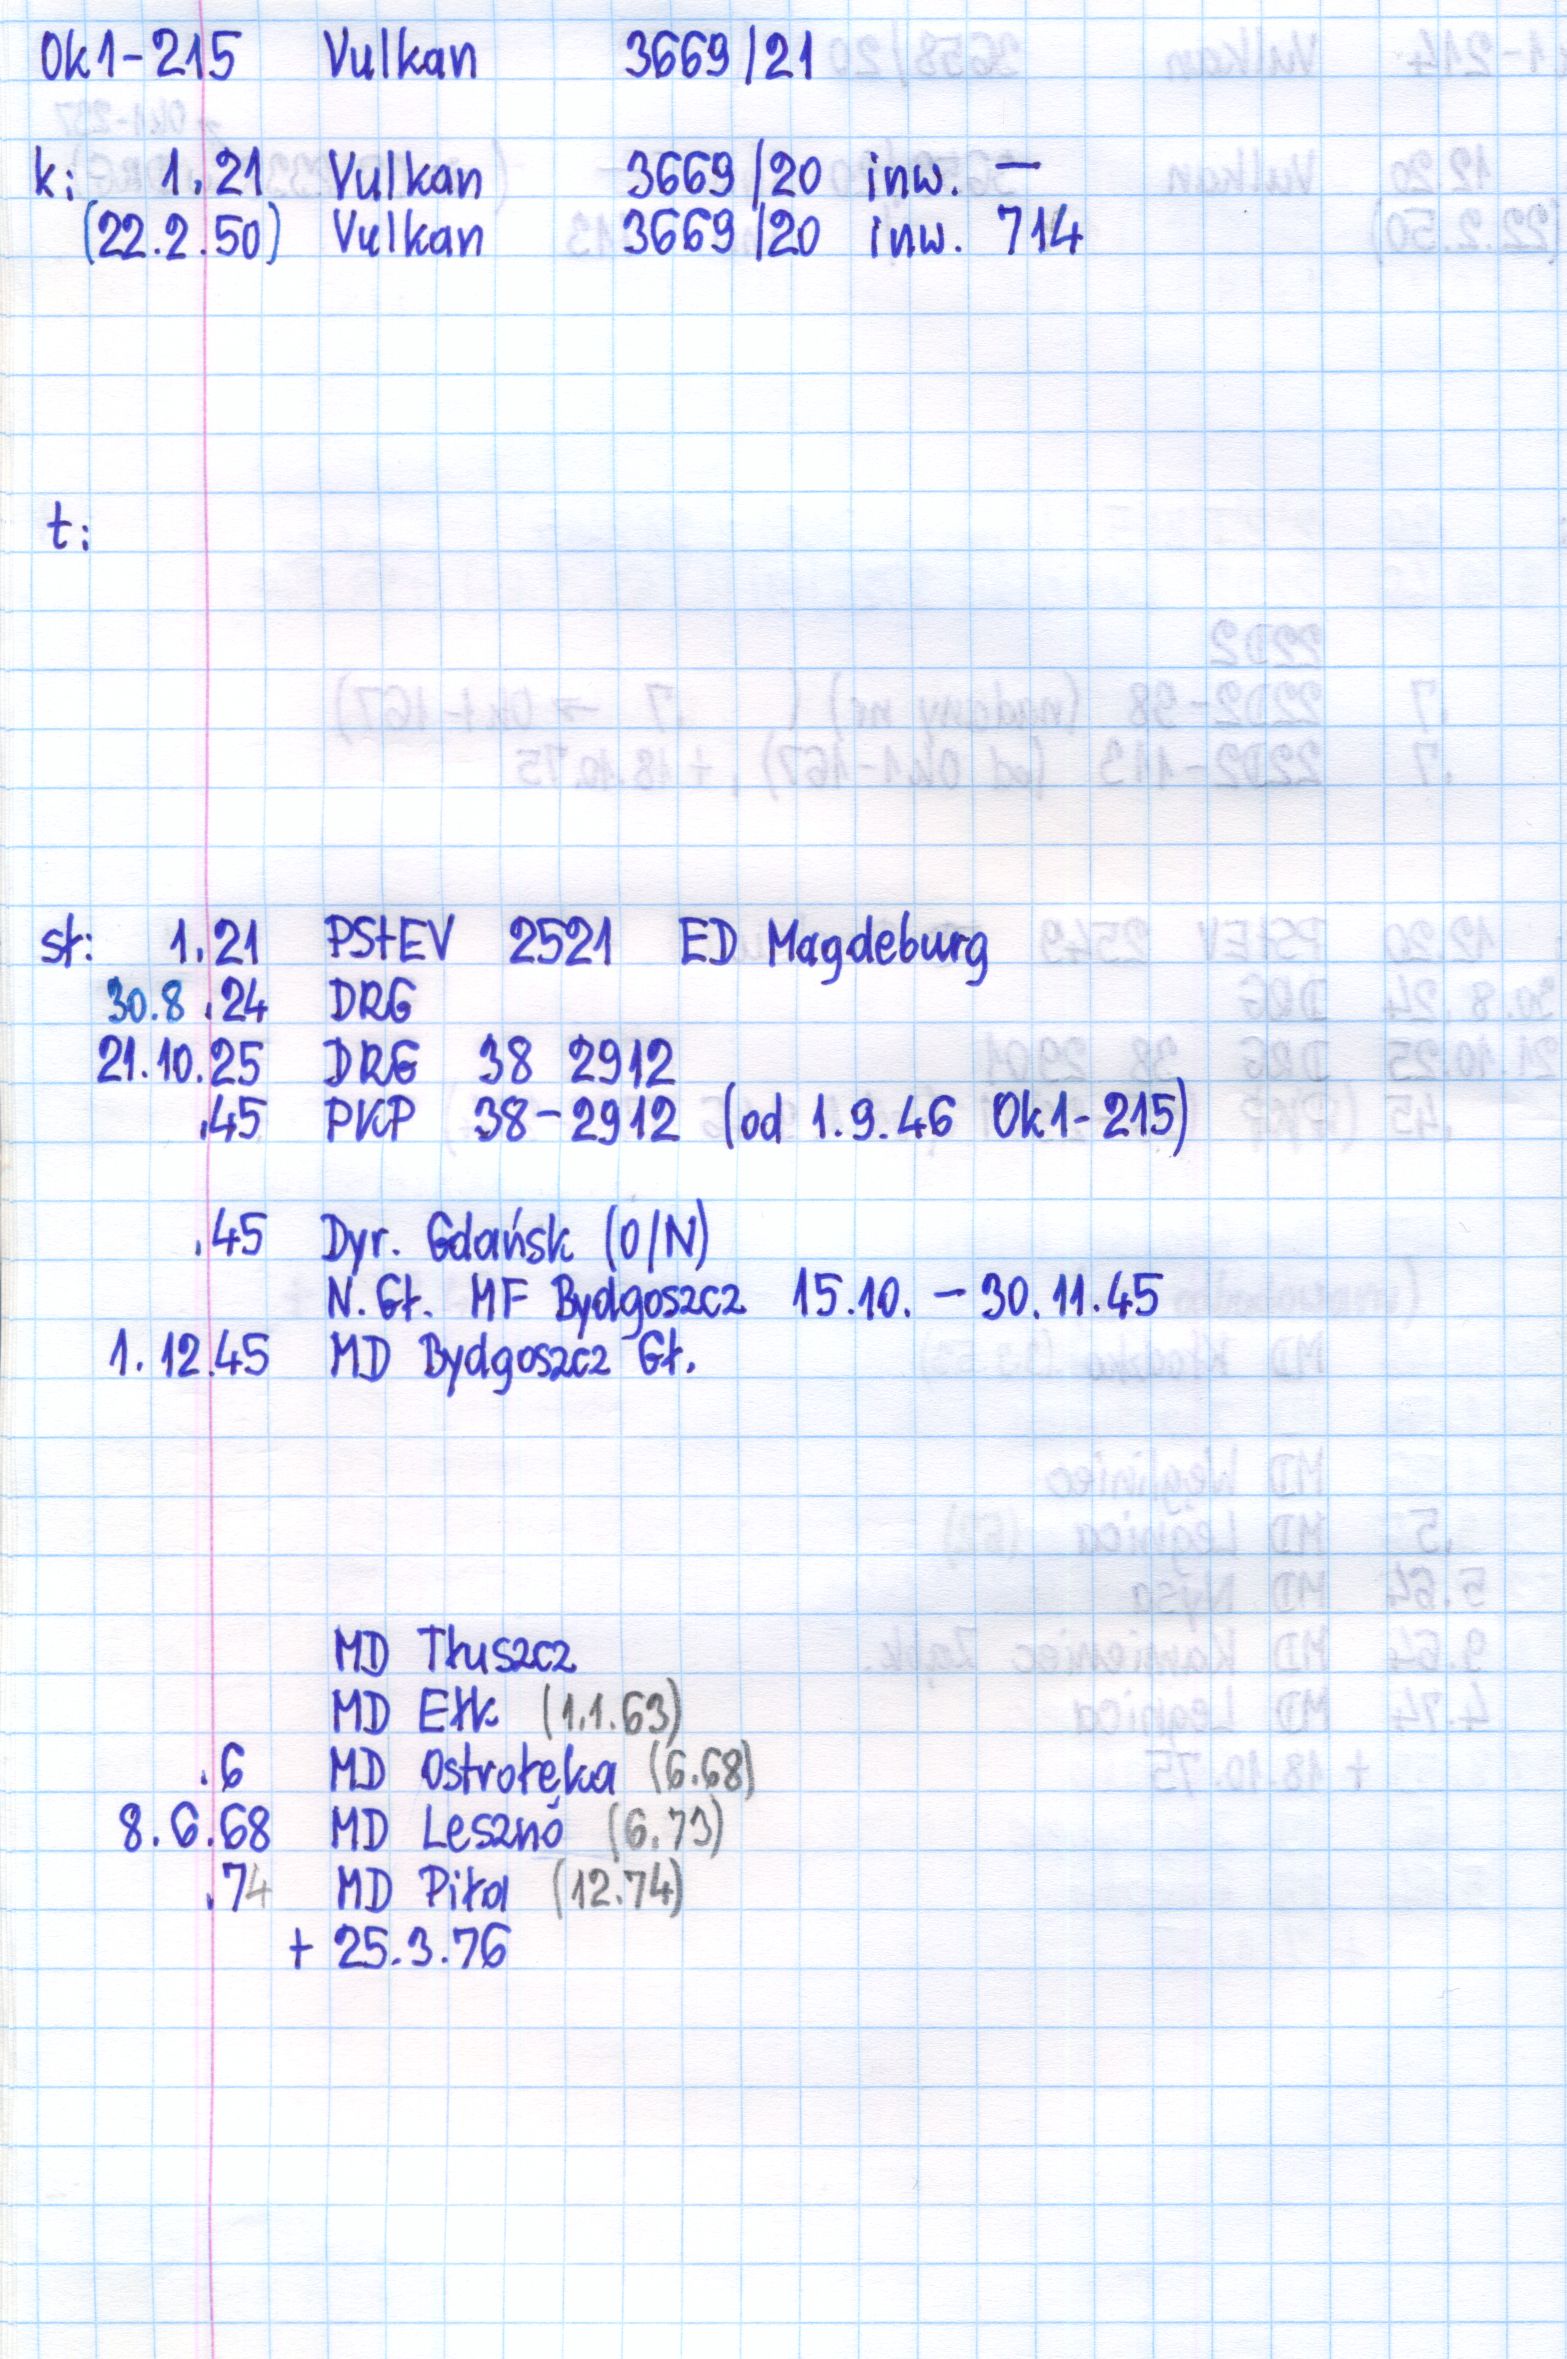 Ok1-215 Vulkan 3669/21
k: 1.21 Vulkan 3669/20 inw. —
(22.2.50) Vulkan 3669/20 inw. 714
t:
st: 1.21 PStEV 2521 ED Magdeburg
30.8.24 DRG
21.10.25 DRG 38 2912
.45 PKP 38-2912 (od 1.9.46 Ok1-215)
.45 Dyr. Gdańsk (O/N)
N.Gł. MF Bydgoszcz 15.10. – 30.11.45
1.12.45 MD Bydgoszcz Gł.
MD Tłuszcz
MD Ełk (1.1.63)
.6 MD Ostrołęka (6.68)
8.6.68 MD Leszno (6.73)
.74 MD Piła (12.74)
+ 25.3.76